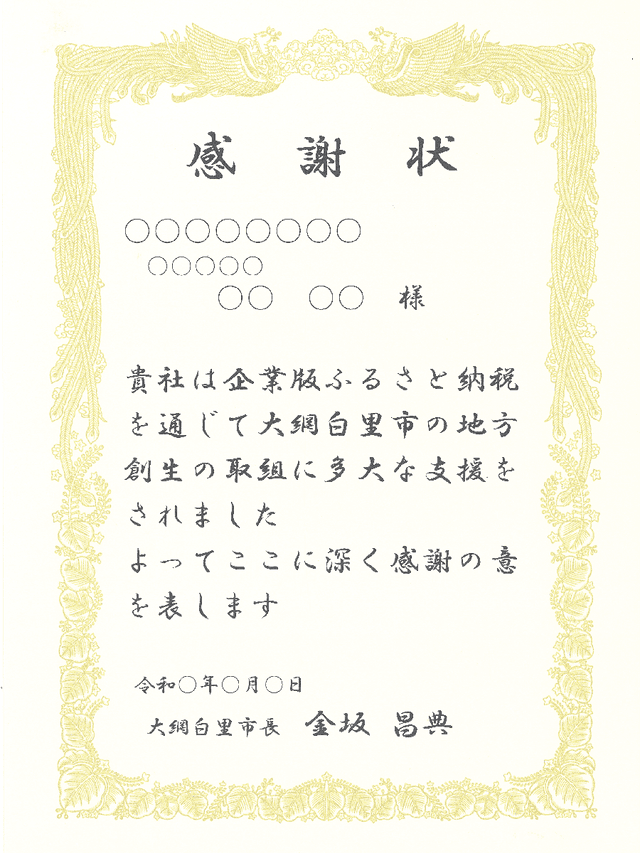 感謝状
○○○○○○○○
○○○○○
○○ ○○ 様
貴社は企業版ふるさと納税
を通じて大網白里市の地方
創生の取組に多大な支援を
されました
よってここに深く感謝の意
を表します
令和○年○月○日
大網白里市長 金坂 昌典